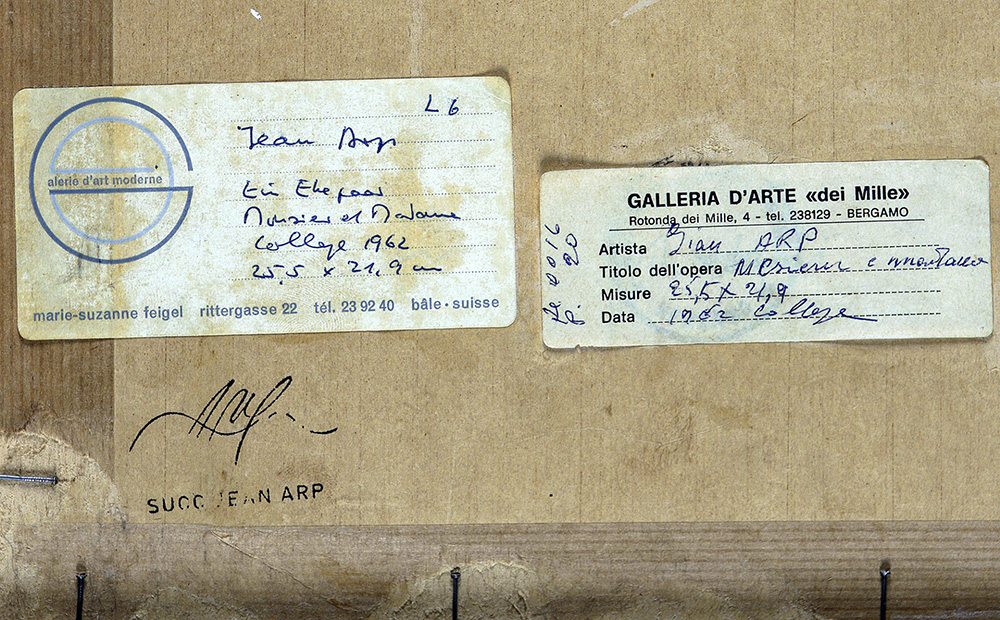 L 6
Jean Arp
alerie d'art moderne
Ein Ehepaar
Monsieur et Madame
Collage 1962
25,5 x 21,9 cm
marie-suzanne feigel rittergasse 22 tél. 23 92 40 bâle · suisse
GALLERIA D'ARTE «dei Mille»
Rotonda dei Mille, 4 - tel. 238129 - BERGAMO
Artista Jian ARP
Titolo dell'opera e
Misure 25,5 x 21,9
Data 1962 Collage
Arp
SUCC JEAN ARP